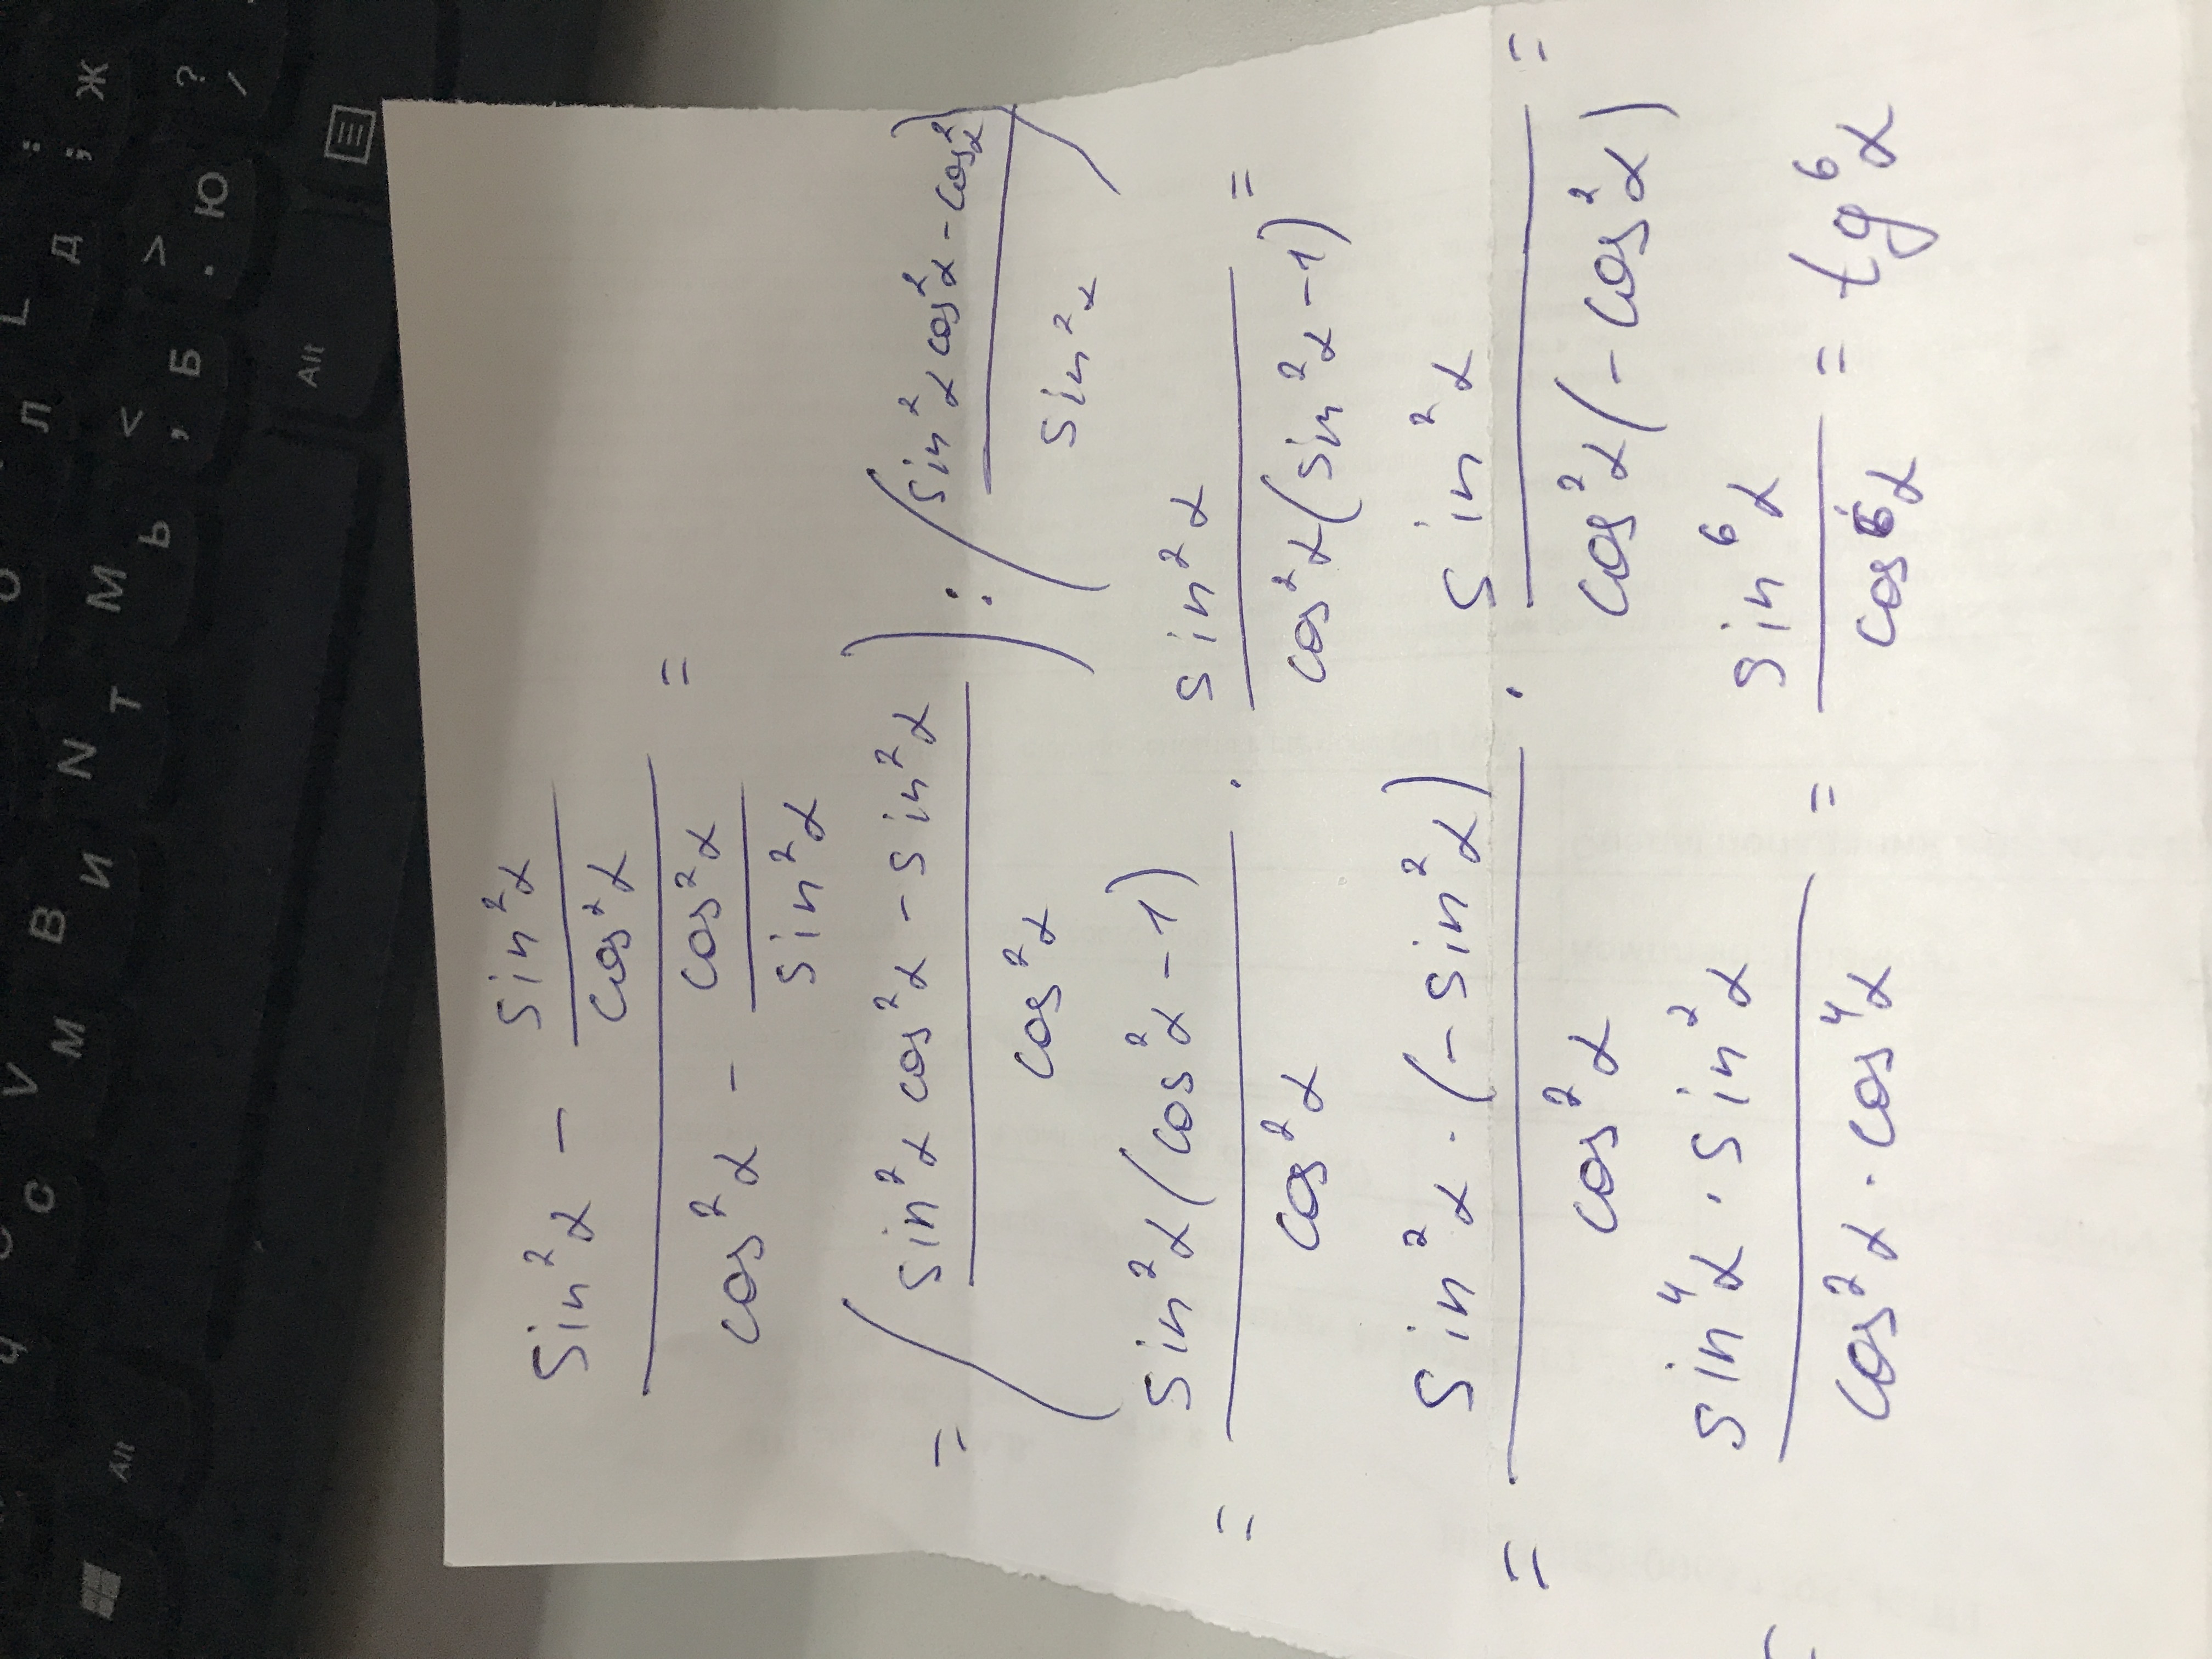 sin²α - sin²α/cos²α
cos²α - cos²α/sin²α =
= (sin²α cos²α - sin²α / cos²α) : (sin²α cos²α - cos²α / sin²α)
= sin²α(cos²α - 1) / cos²α · sin²α / cos²α(sin²α - 1) =
= sin²α · (-sin²α) / cos²α · sin²α / cos²α(-cos²α) =
= sin⁴α · sin²α / cos²α · cos⁴α = sin⁶α / cos⁶α = tg⁶α
Alt
С М В И N Т М Ь < , Б > . Ю ? /
V Л Д L : ; Ж
Alt